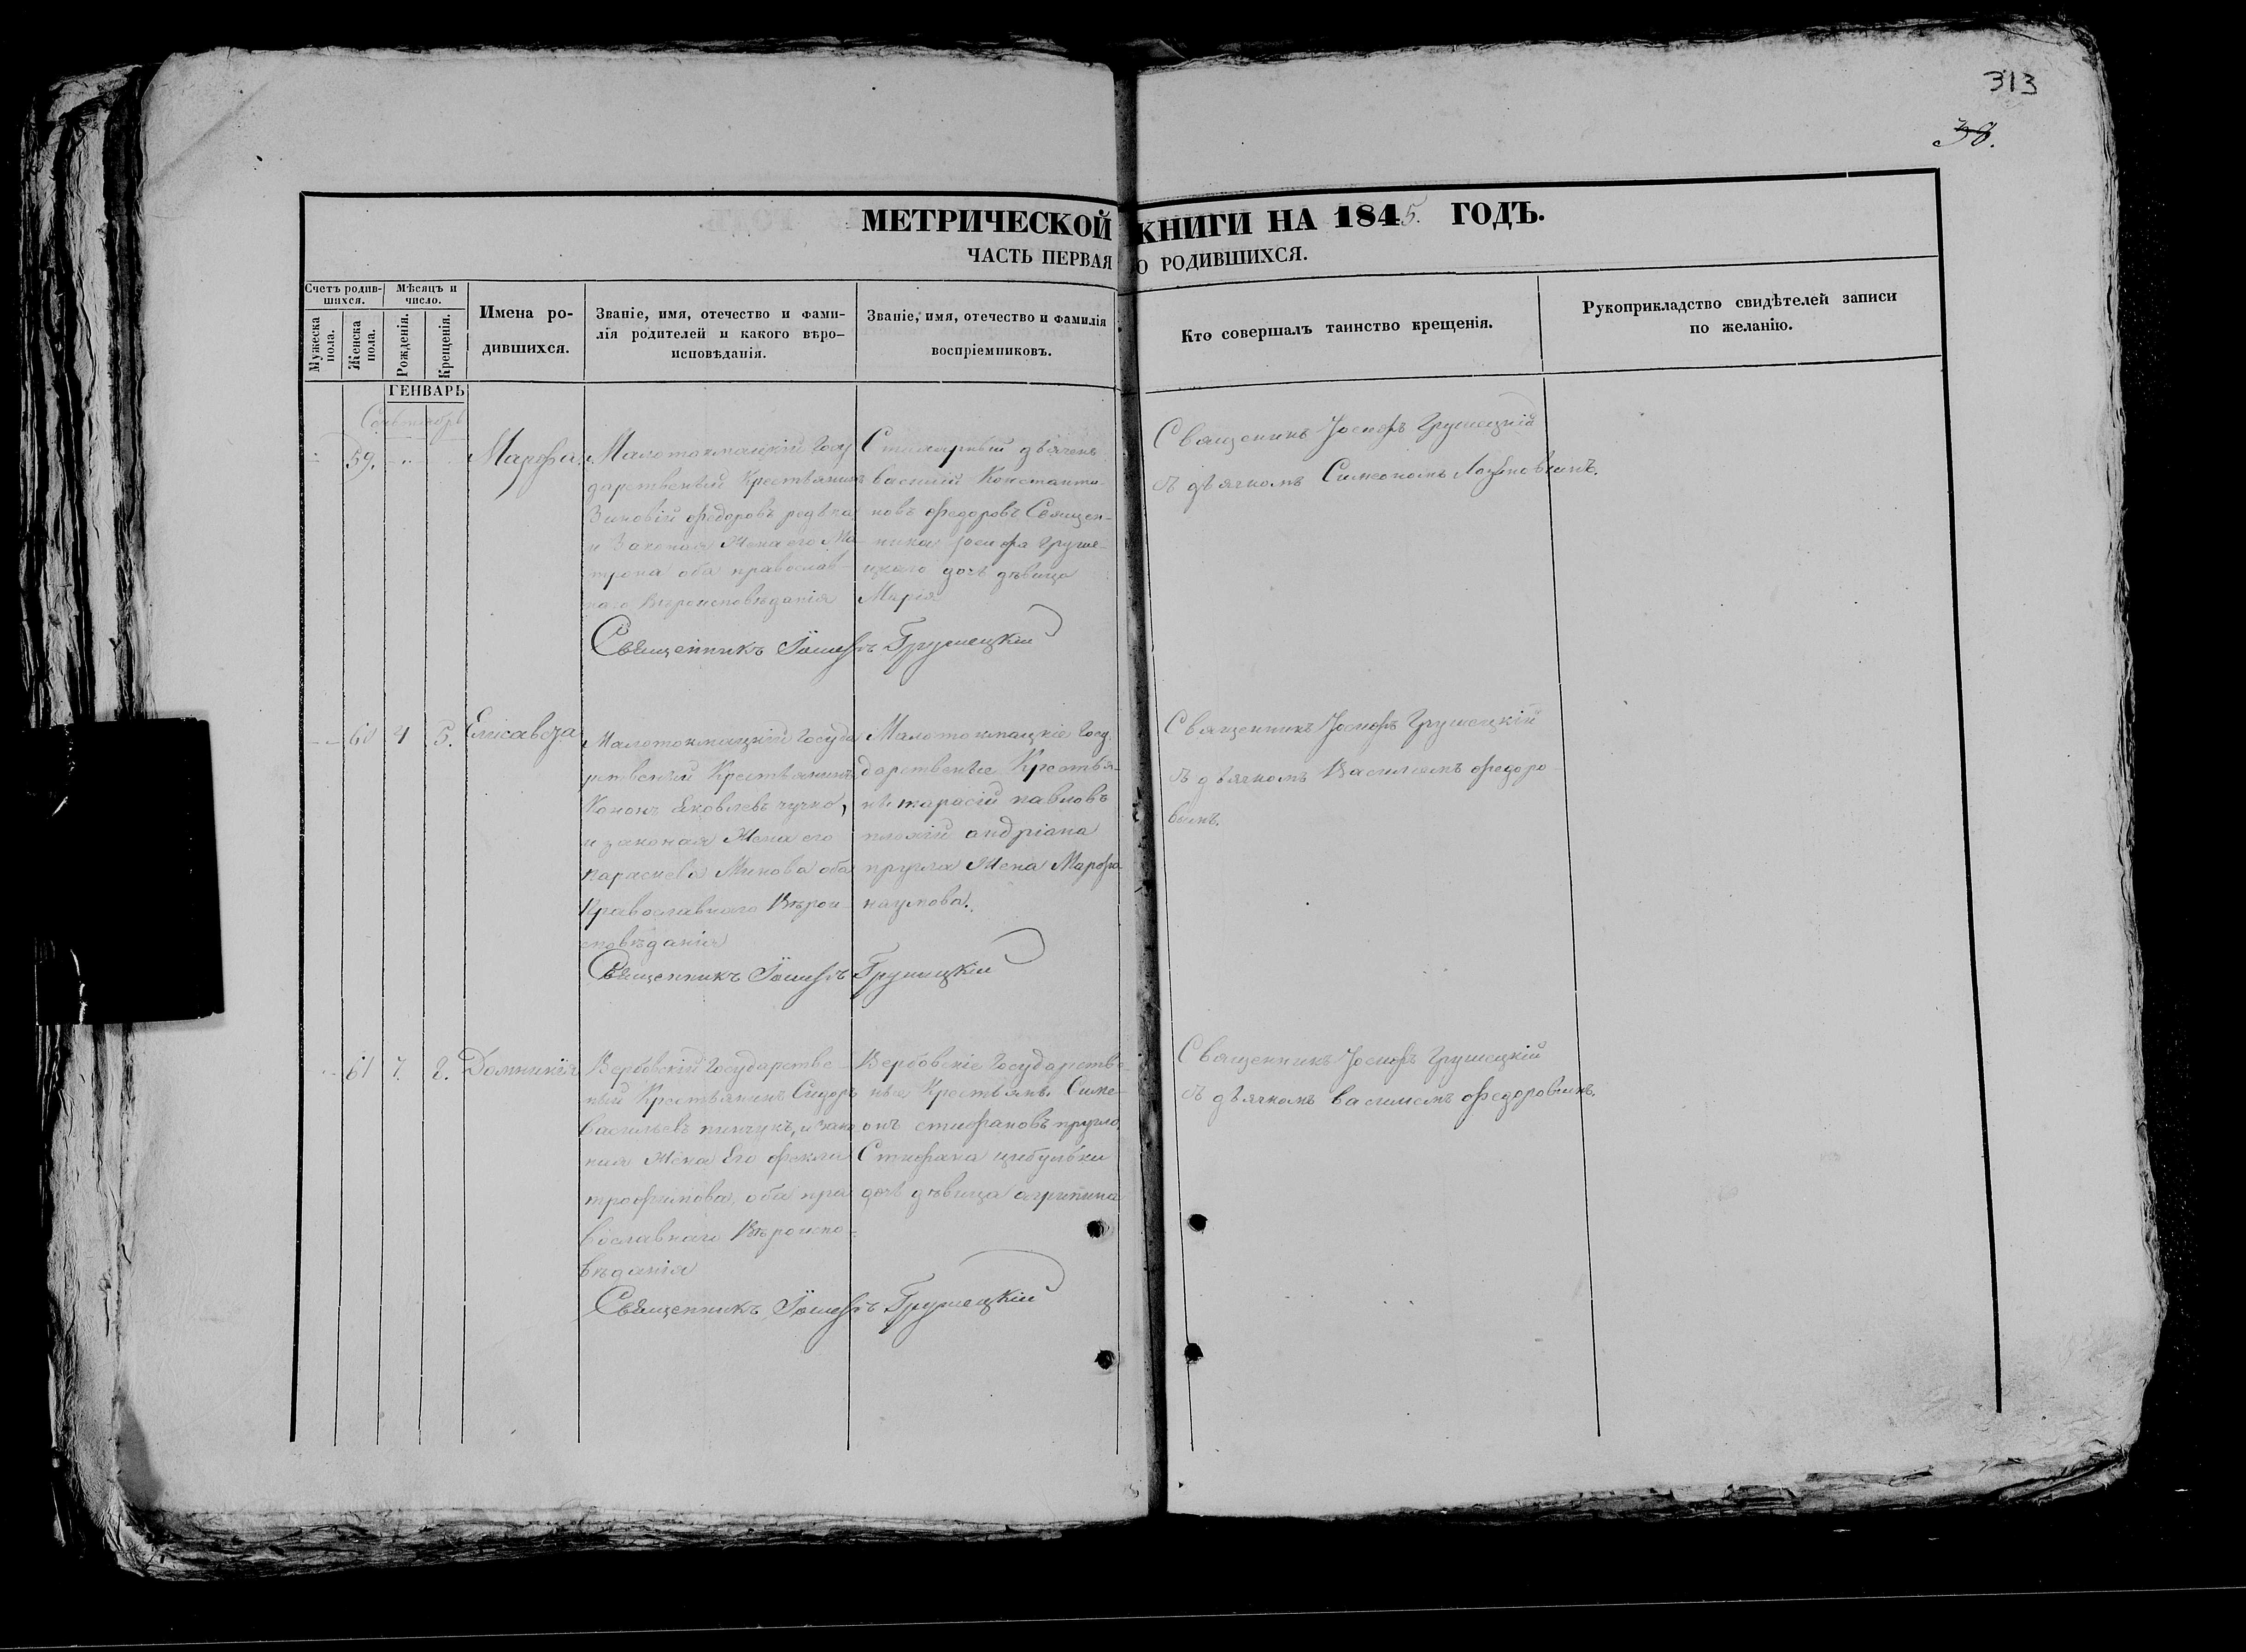 313
38.
МЕТРИЧЕСКОЙ КНИГИ НА 1845. ГОДЪ.
ЧАСТЬ ПЕРВАЯ О РОДИВШИХСЯ.
Счетъ родив-
шихся.
Мужеска
пола.
Женска
пола.
Мѣсяцъ и
число.
Рожденія.
Крещенія.
Имена ро-
дившихся.
Званіе, имя, отечество и фами-
лія родителей и какого вѣро-
исповѣданія.
Званіе, имя, отечество и фамилія
воспріемниковъ.
Кто совершалъ таинство крещенія.
Рукоприкладство свидѣтелей записи
по желанію.
ГЕНВАРЬ
Сентябрь
59.
Марфа
Малотокмацкій Госу
дарственый Крестьянинъ
Зиновій федоровъ редька
и Законая Жена его Ма-
трона оба православ-
наго Вѣроисповѣданія
дьячекъ
василій Константи-
новъ федоровъ Священ-
ника Іосифа Груше-
цкаго дочь дѣвица
Марія
Священникъ Іосифъ Грушецкій
съ дьячкомъ Симеономъ
Священникъ Іосифъ Грушецкій
60 4 5.
Елисавета
Малотокмацкій Госуда
рственый Крестьянинъ
Кононъ Яковлевъ чучко,
и законая Жена его
параскева Минова оба
Православнаго Вѣрои-
сповѣданія
Малотокмацкіе Госу
дарственые Крестья-
нѣ тарасій павловъ
плохій андріана
кругла Жена Марфа
наумова.
Священникъ Іосифъ Грушецкій
съ дьячкомъ Василіемъ федоро
вымъ.
Священникъ Іосифъ Грушецкій
61 7. 8.
Домникія
Вербовскій Государстве-
ный Крестьянинъ Сидоръ
васильевъ пинчукъ, и зако
ная Жена Его фекла
трофимова, оба пра
вославнаго Вѣроиспо-
вѣданія
Вербовскіе Государстве
ные Крестьянѣ Симе-
онъ стифановъ кругло,
Стифана цибульки
дочь дѣвица агрипина
Священникъ Іосифъ Грушецкій
съ дьячкомъ василіемъ федоровымъ.
Священникъ Іосифъ Грушецкій